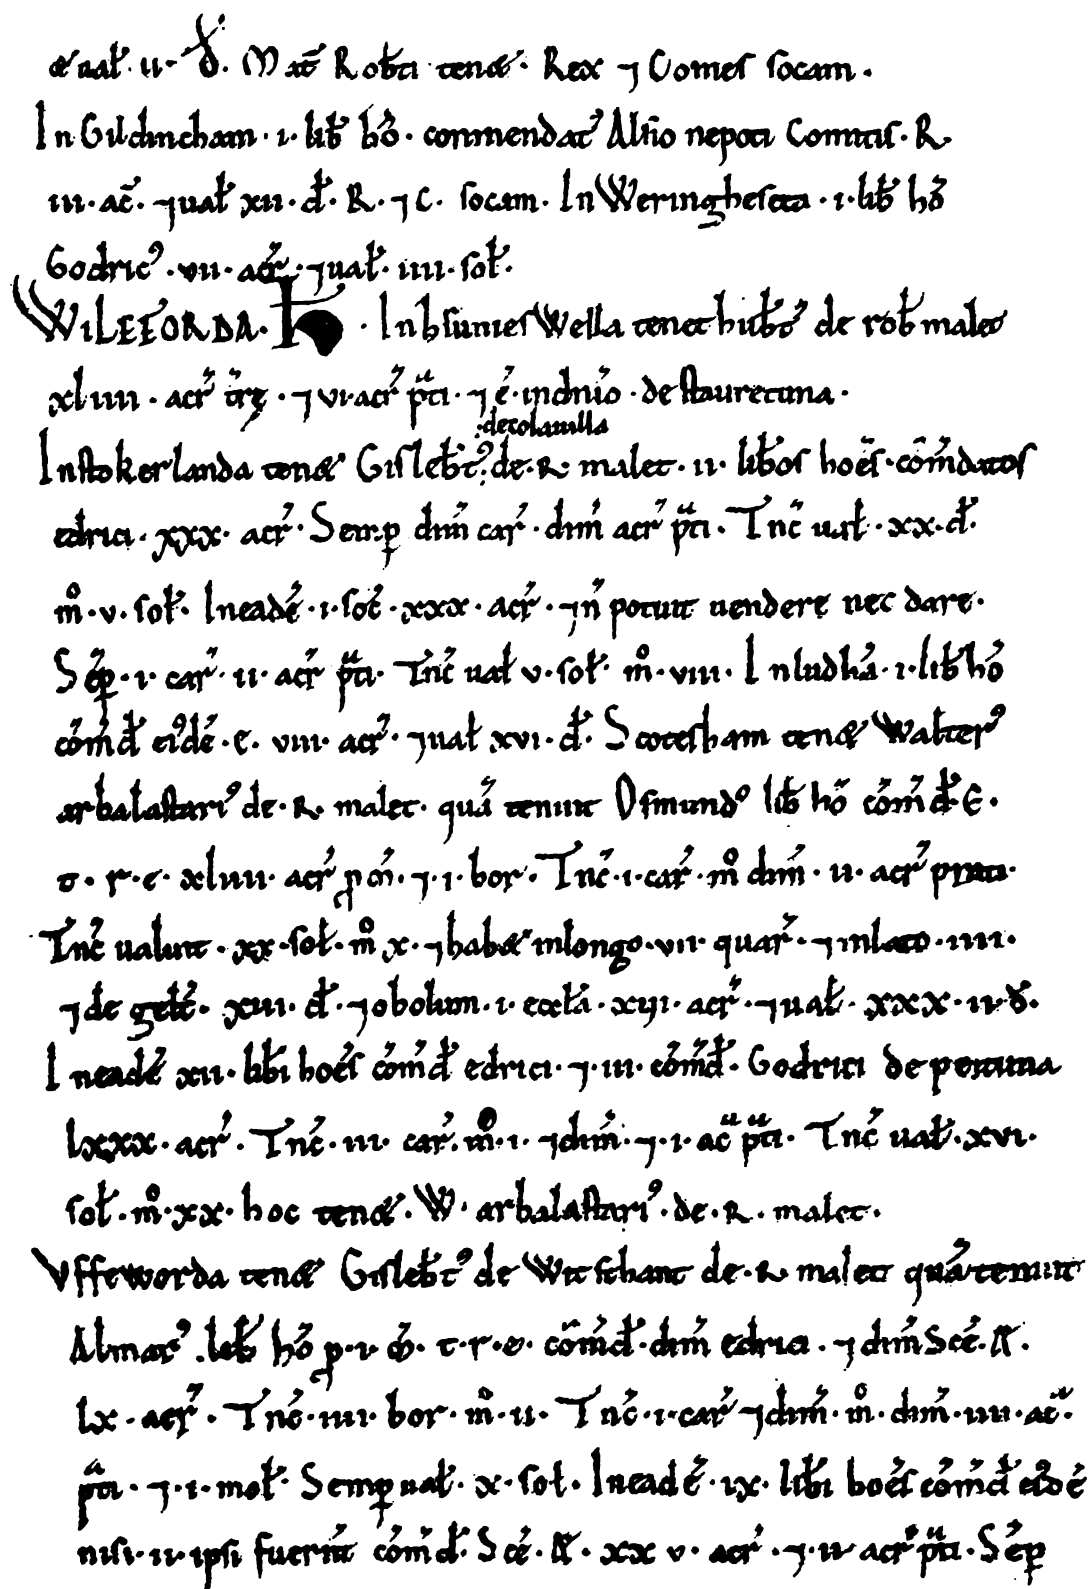 & ual̃. ii. đ. Mat̃ Rob̃ti ten&. Rex ⁊ Comes socam.
In Gildincham. i. lib̃ hõ. conmendat᾽ Alsio nepoti Comitis. R.
iii. ac̃. ⁊ ual̃ xii. đ. R. ⁊ C. socam. In Weringheseta. i. lib̃ hõ
Godric᾽. vii. acr̃. ⁊ ual̃. iiii. sol̃.
WILEFORDA. H̃. In bsunies Wella tenet hub̃t᾽ de rob̃ malet
xliiii. acr̃ tr̃ę. ⁊ vi. acr̃ p̃ti. ⁊ ẽ. in dnĩo. de stauretuna.
:de colauilla
In stokerlanda ten& Gisleb̃t᾽: de. R. malet. ii. lib̃os hoẽs. cõm̃datos
edrici. xxx. acr̃. Semꝑ dim̃ car̃. dim̃ acr̃ p̃ti. Tnc̃ ual̃. xx. đ.
m̊. v. sol̃. In eadẽ. i. soc̃. xxx. acr̃. ⁊ ñ potuit uendere nec dare.
Sẽꝑ. i. car̃. ii. acr̃ p̃ti. Tnc̃ ual̃ v. sol̃. m̊. viii. In ludhã. i. lib̃ hõ
cõm̃đ ei᾽dẽ. e. viii. acr̃. ⁊ ual̃ xvi. đ. Scotesham ten& Walter᾽
arbalastari᾽ de. R. malet. quã tenuit Osmund᾽ lib̃ hõ cõm̃đ. E.
t. r. e. xliiii. acr̃ ꝓ m̃. ⁊. i. bor. Tnc̃. i. car̃. m̊ dim̃. ii. acr̃ prati.
Tnc̃ ualuit. xx. sol̃. m̊ x. ⁊ hab& in longo. vii. quar̃. ⁊ in lato. iiii.
⁊ de gelt̃. xiii. đ. ⁊ obolum. i. eccl̃a. xiij. acr̃. ⁊ ual̃. xxx. ii. đ.
In eadẽ xii. lib̃i hoẽs cõm̃đ edrici. ⁊. iii. cõm̃đ. Godrici de peituna
lxxx. acr̃. Tnc̃. iii. car̃. m̊. i. ⁊ dim̃. ⁊. i. ac̃ p̃ti. Tnc̃ ual̃. xvi.
sol̃. m̊. xx. hoc ten&. W. arbalastari᾽. de. R. malet.
Vffeworda ten& Gisleb̃t᾽ de Witshant de. R. malet quã tenuit
Almar᾽. leb̃ hõ ꝓ. i. m̃. t. r. e. cõm̃đ. dim̃ edrici. ⁊ dim̃ Scẽ. Æ̃.
lx. acr̃. Tnc̃. iiii. bor. m̊. ii. Tnc̃. i. car̃ ⁊ dim̃. m̊. dim̃. iiii. ac̃.
p̃ti. ⁊. i. mol̃. Semꝑ ual̃. x. sol. In eadẽ. ix. lib̃i hoẽs cõm̃đ ei᾽dẽ
nisi. ii. ipsi fuer̃nt cõm̃đ. Scẽ. Æ̃. xx v. acr̃. ⁊. ii. acr̃ p̃ti. Sẽꝑ